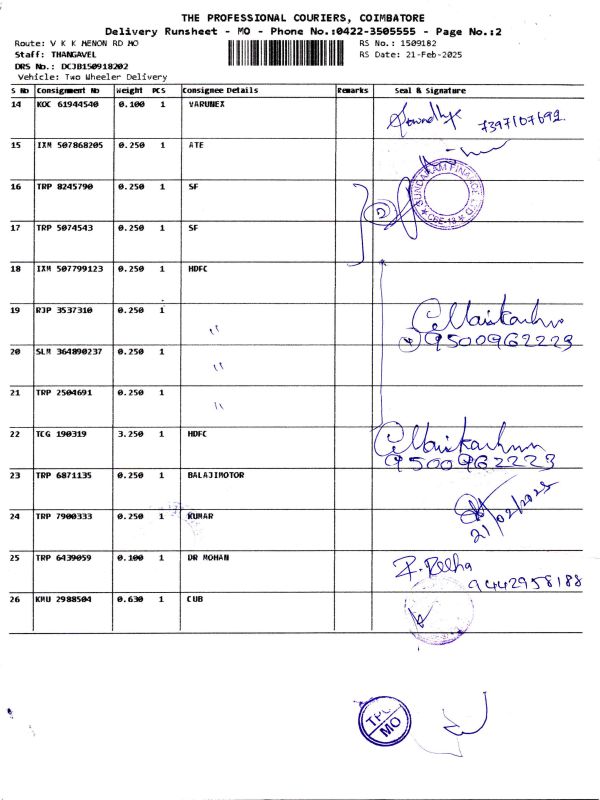 THE PROFESSIONAL COURIERS, COIMBATORE
Delivery Runsheet - MO - Phone No.:0422-3505555 - Page No.:2
Route: V K K MENON RD MO RS No.: 1509182
Staff: THANGAVEL RS Date: 21-Feb-2025
DRS No.: DCJB150918202
Vehicle: Two Wheeler Delivery
S No Consignment No Weight PCS Consignee Details Remarks Seal & Signature
14 KOC 61944540 0.100 1 VARUNEX
7397107692
15 IXM 507868205 0.250 1 ATE
16 TRP 8245790 0.250 1 SF
2
SUNDARAM FINANCE LTD
CBE-18
17 TRP 5074543 0.250 1 SF
18 IXM 507799123 0.250 1 HDFC
19 RJP 3537310 0.250 1 "
4 9500962223
20 SLM 364890237 0.250 1 "
21 TRP 2504691 0.250 1 "
22 TCG 190319 3.250 1 HDFC
9500962223
23 TRP 6871135 0.250 1 BALAJIMOTOR
21/02/2025
24 TRP 7900333 0.250 1 KUMAR
25 TRP 6439059 0.100 1 DR MOHAN
9442958188
26 KMU 2988504 0.630 1 CUB
TPC
MO